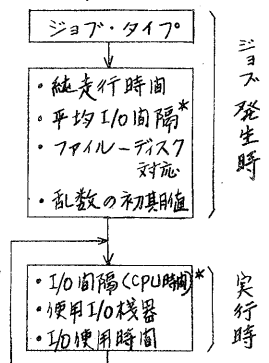 ジョブ・タイプ
・純走行時間
・平均I/O間隔*
・ファイルーディスク
対応
・乱数の初期値
ジョブ発生時
・I/O間隔(CPU時間)*
・使用I/O機器
・I/O使用時間
実行時